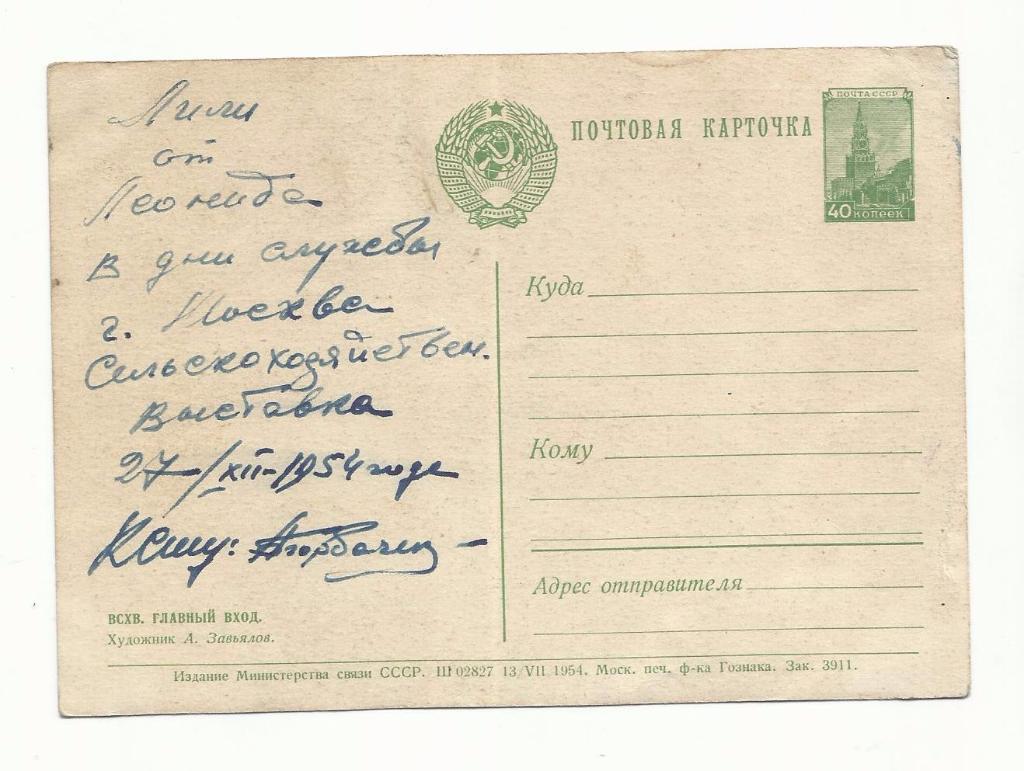 Лили
от
Леонида
в дни службы
г. Москва
Сельскохозяйствен.
выставка
27-/XII-1954 года
ВСХВ. ГЛАВНЫЙ ВХОД.
Художник А. Завьялов.
ПОЧТОВАЯ КАРТОЧКА
ПОЧТА СССР
40 КОПЕЕК
Куда
Кому
Адрес отправителя
Издание Министерства связи СССР. Ш 02827 13/VII 1954. Моск. печ. ф-ка Гознака. Зак. 3911.